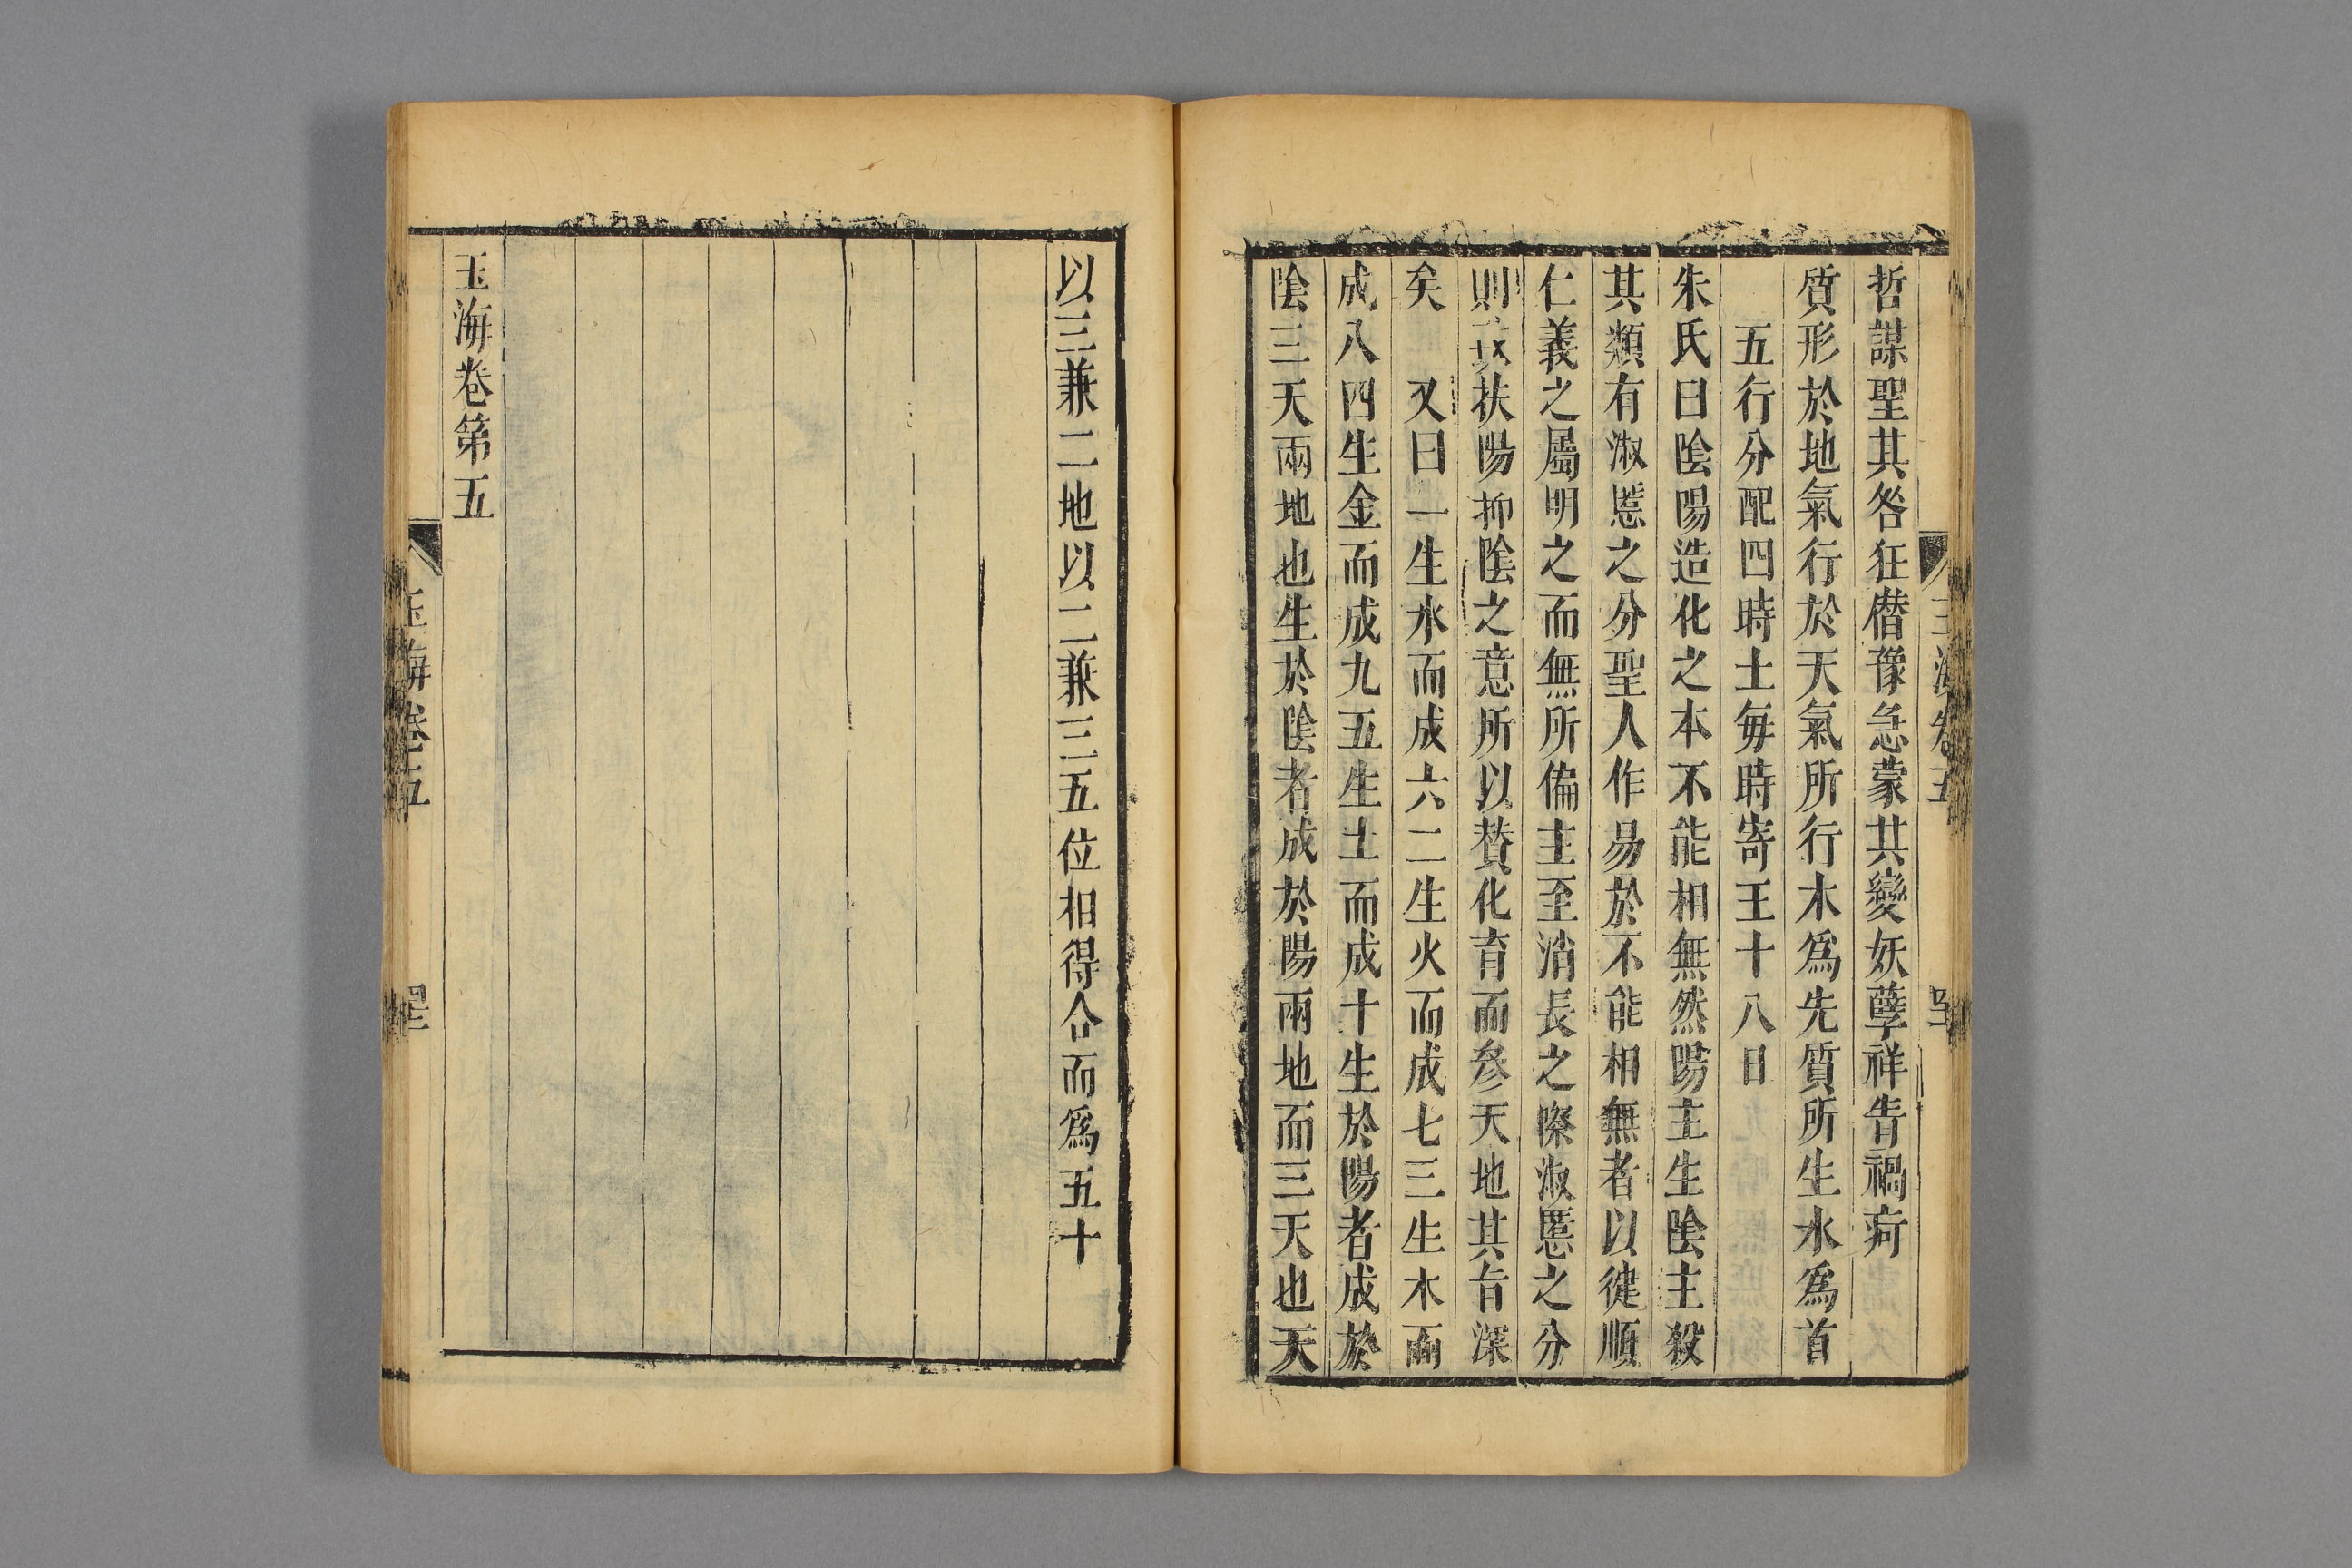 哲謀聖其咎狂僭豫急蒙其變妖孽祥眚禍痾
質形於地氣行於天氣所行木爲先質所生水爲首
五行分配四時土每時寄王十八日
朱氏曰陰陽造化之本不能相無然陽主生陰主殺
其類有淑慝之分聖人作易於不能相無者以健順
仁義之屬明之而無所偏主至消長之際淑慝之分
則扶陽抑陰之意所以贊化育而參天地其旨深
矣 又曰一生水而成六二生火而成七三生木而
成八四生金而成九五生土而成十生於陽者成於
陰三天兩地也生於陰者成於陽兩地而三天也天
以三兼二地以二兼三五位相得合而爲五十
玉海卷第五
玉海卷五